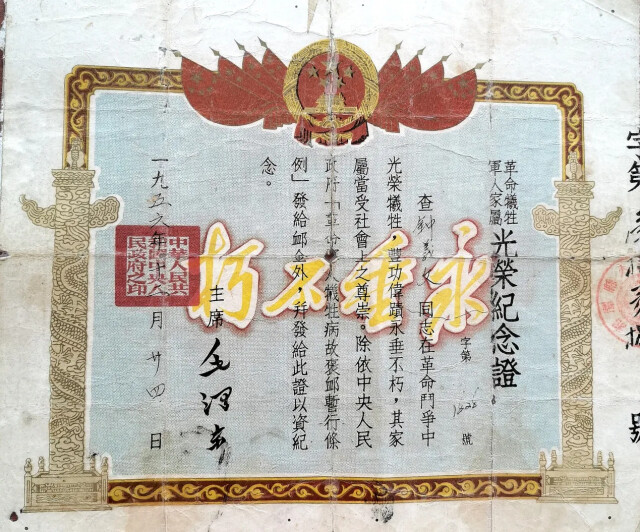 革命犧牲
軍人家屬
光榮紀念證
字第 1228 號
查 同志在革命鬥爭中
光榮犧牲，豐功偉蹟永垂不朽，其家
屬當受社會上之尊崇。除依中央人民
政府「革命軍人犧牲病故褒卹暫行條
例」發給卹金外，幷發給此證以資紀
念。
主席 毛澤東
一九五 年十 月廿四日
中華人民共
民政府之印
永垂不朽
字第 號